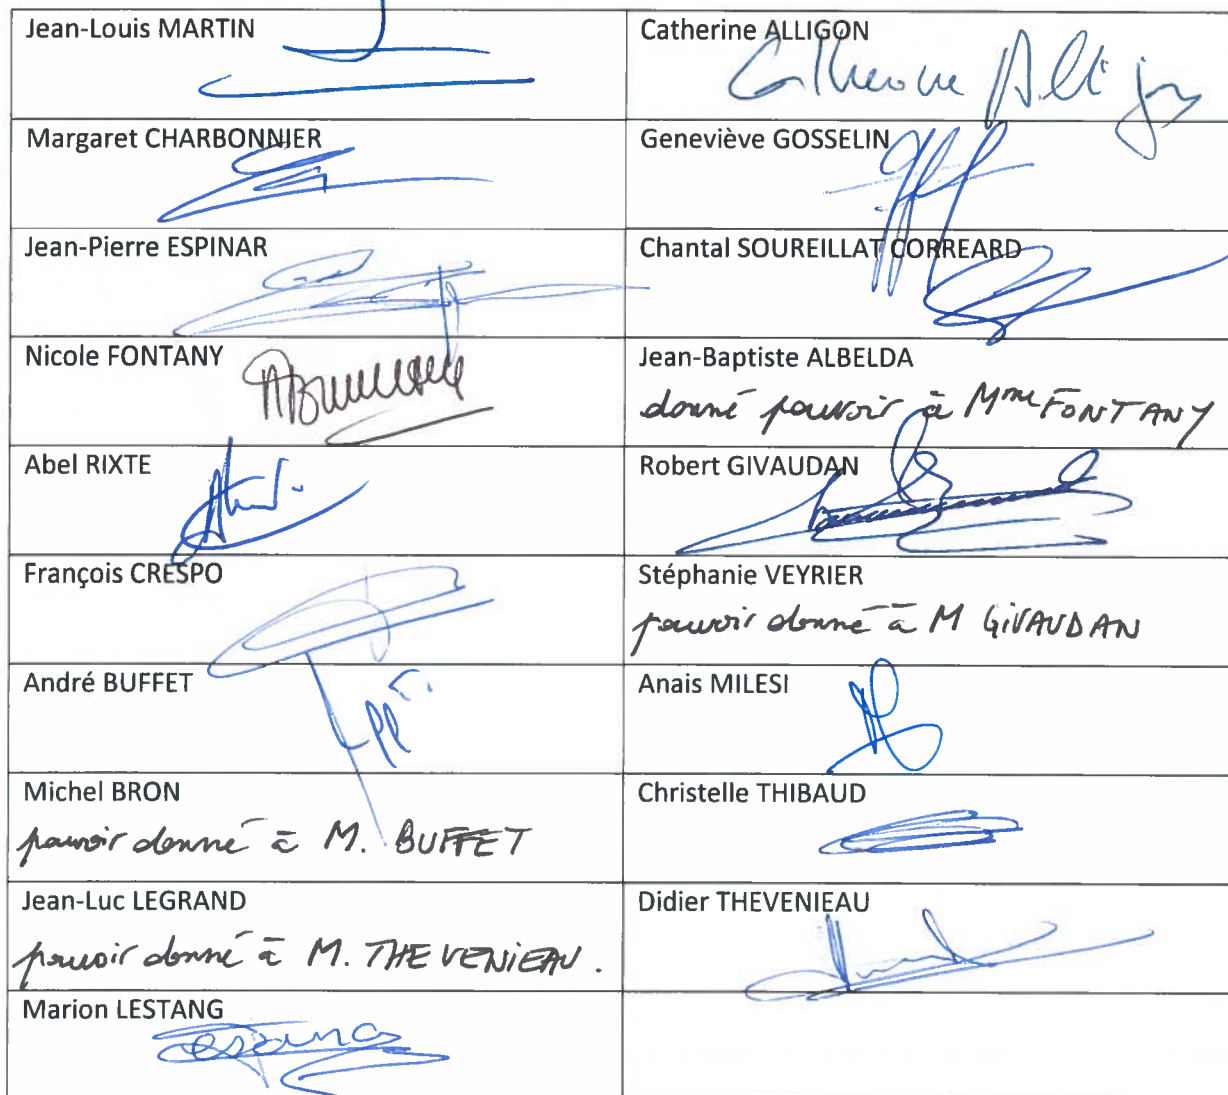 Jean-Louis MARTIN
Catherine ALLIGON
Catherine Alligon
Margaret CHARBONNIER
Geneviève GOSSELIN
Jean-Pierre ESPINAR
Chantal SOUREILLAT CORREARD
Nicole FONTANY
Jean-Baptiste ALBELDA
donné pouvoir à Mme FONTANY
Abel RIXTE
Robert GIVAUDAN
François CRESPO
Stéphanie VEYRIER
pouvoir donné à M GIVAUDAN
André BUFFET
Anais MILESI
Michel BRON
pouvoir donné à M. BUFFET
Christelle THIBAUD
Jean-Luc LEGRAND
pouvoir donné à M. THEVENIEAU.
Didier THEVENIEAU
Marion LESTANG